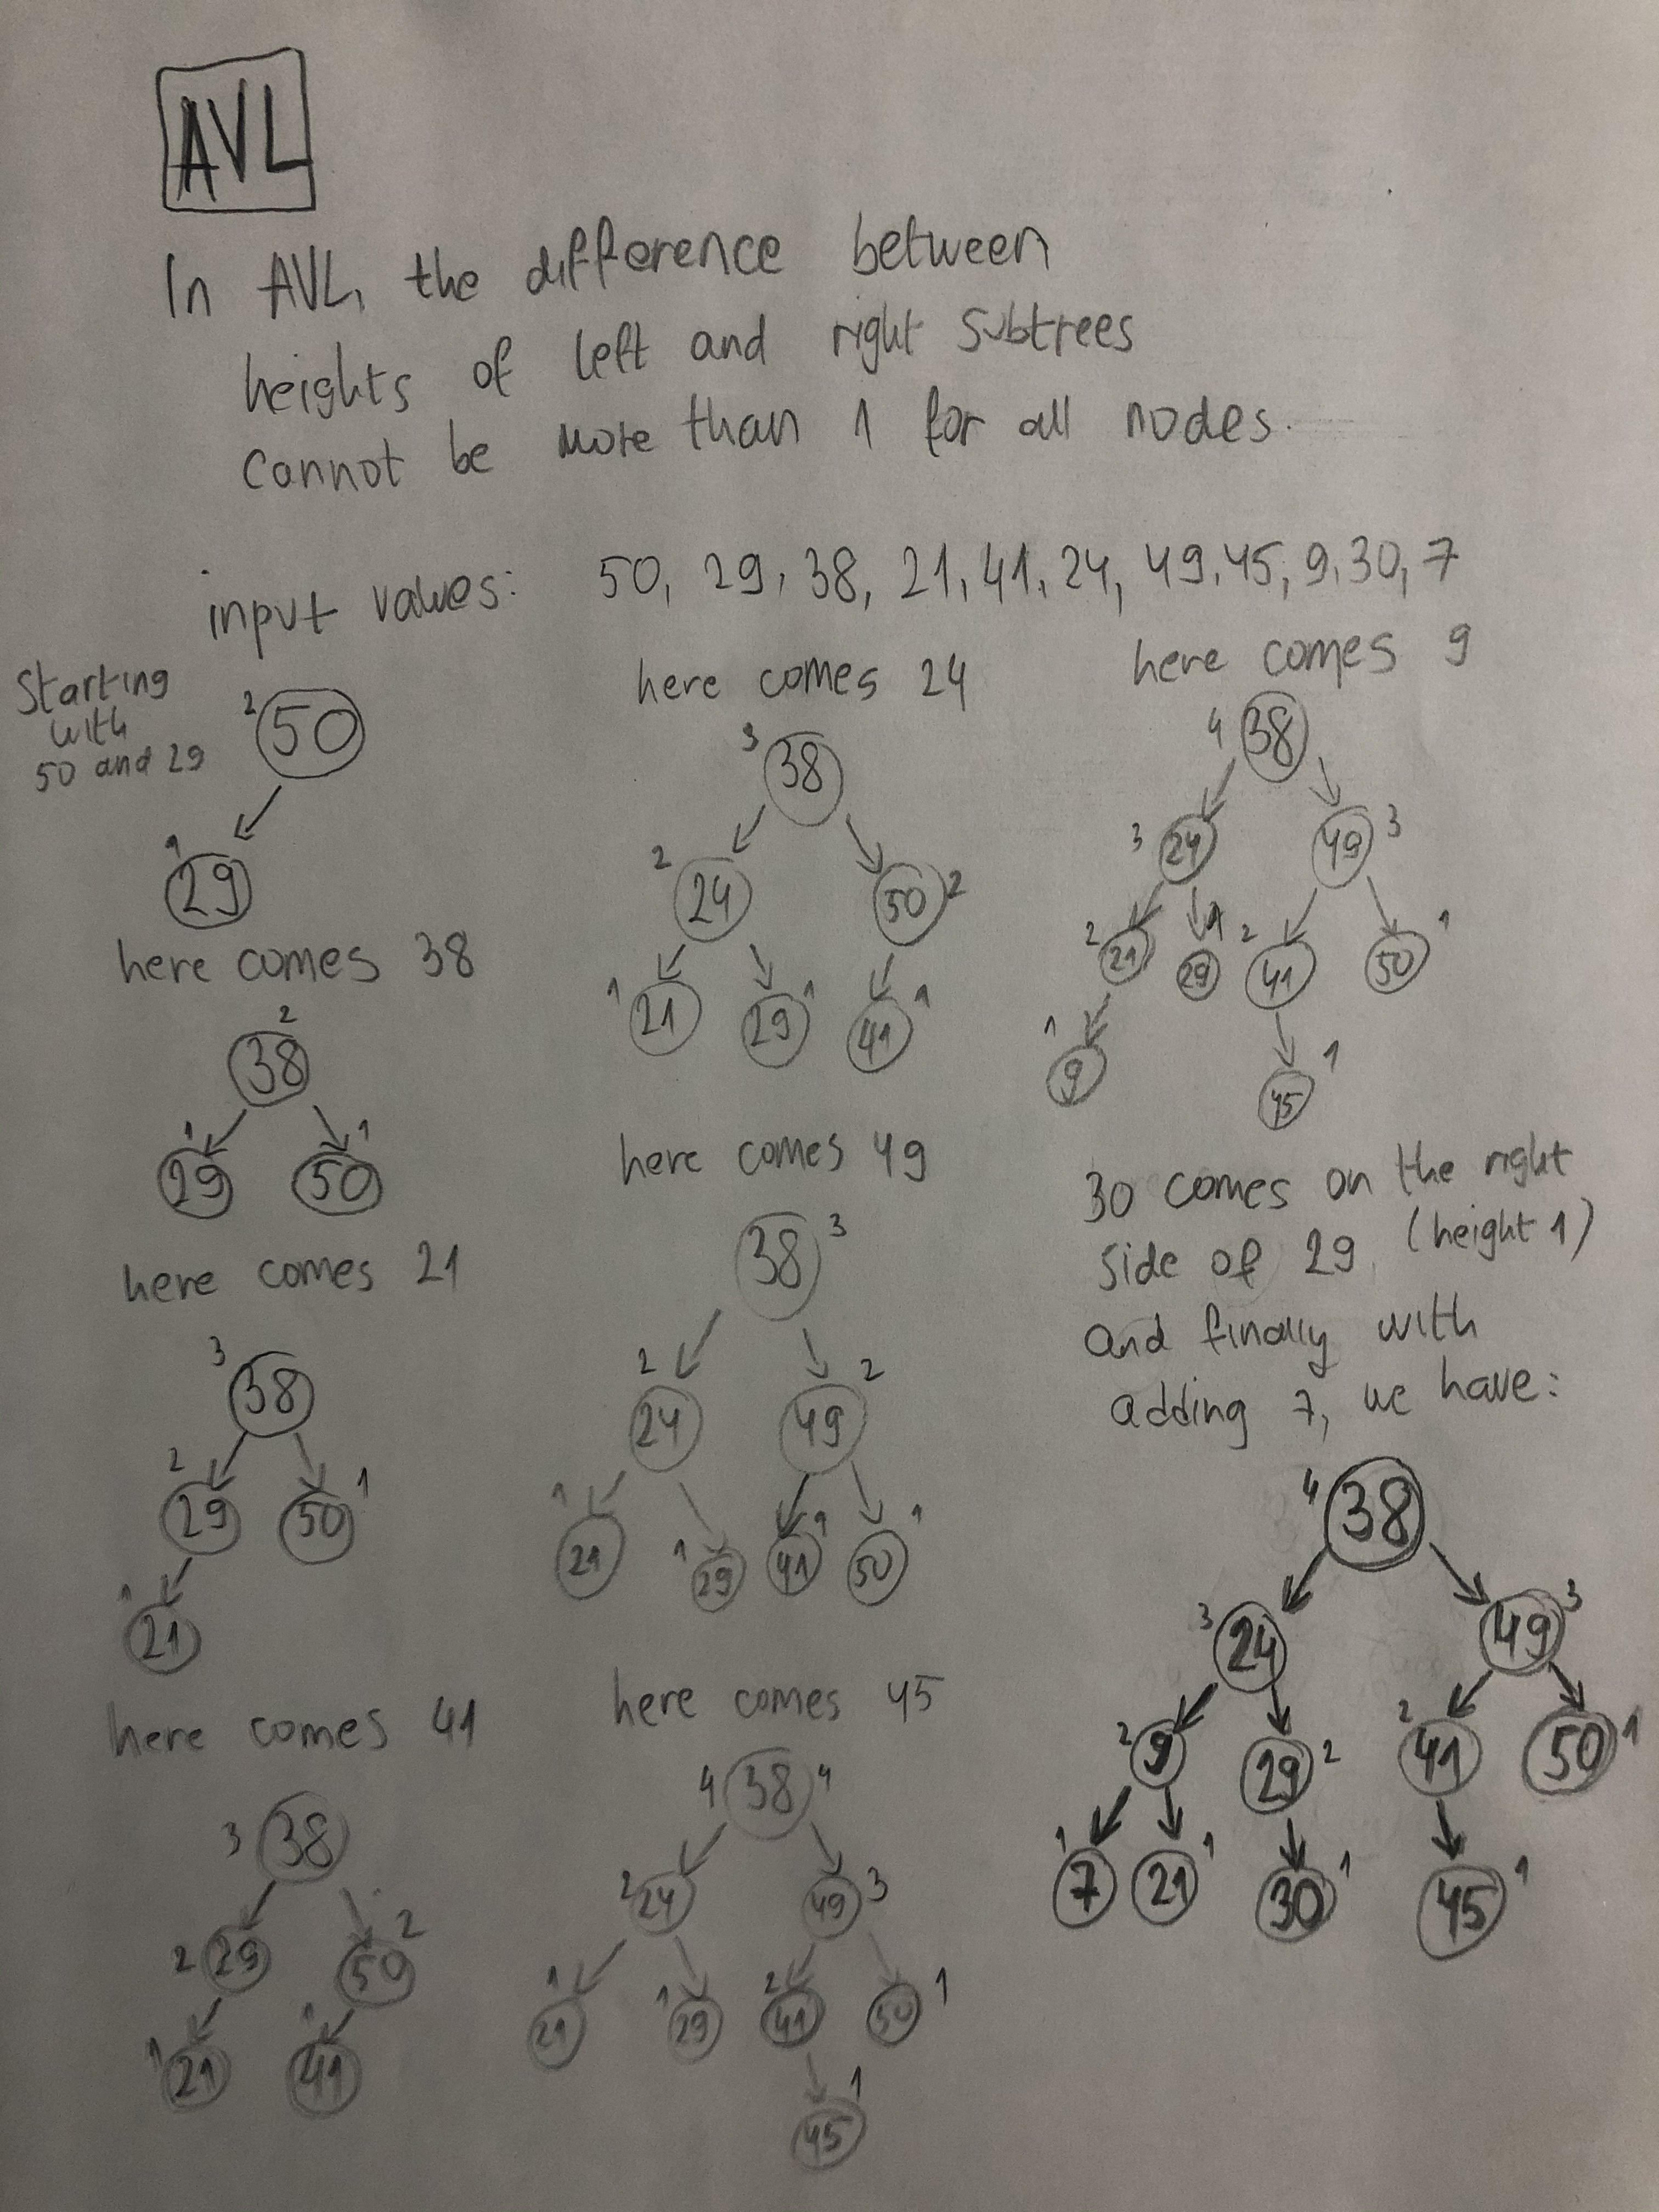 AVL
In AVL, the difference between
heights of left and right subtrees
cannot be more than 1 for all nodes.
input values: 50, 29, 38, 21, 41, 24, 49, 45, 9, 30, 7
Starting
with
50 and 29
2 50
1
29
here comes 38
2
38
1 1
29 50
here comes 21
3
38
2
29 50 1
1
21
here comes 41
3 38
2 29 50 2
1 1
21 41
here comes 24
3
38
2
24 50 2
1 1 1
21 29 41
here comes 49
38 3
2 2
24 49
1 1 1 1
21 29 41 50
here comes 45
4 38 4
2 24 49 3
1 1 2 1
21 29 41 50
1
45
here comes 9
4 38
3 24 49 3
2 1 2 1
21 29 41 50
1 1
9 45
30 comes on the right
side of 29 (height 1)
and finally with
adding 7, we have:
4 38
3 24 49 3
2 9 29 2 2 41 50 1
1 7 21 1 30 1 45 1